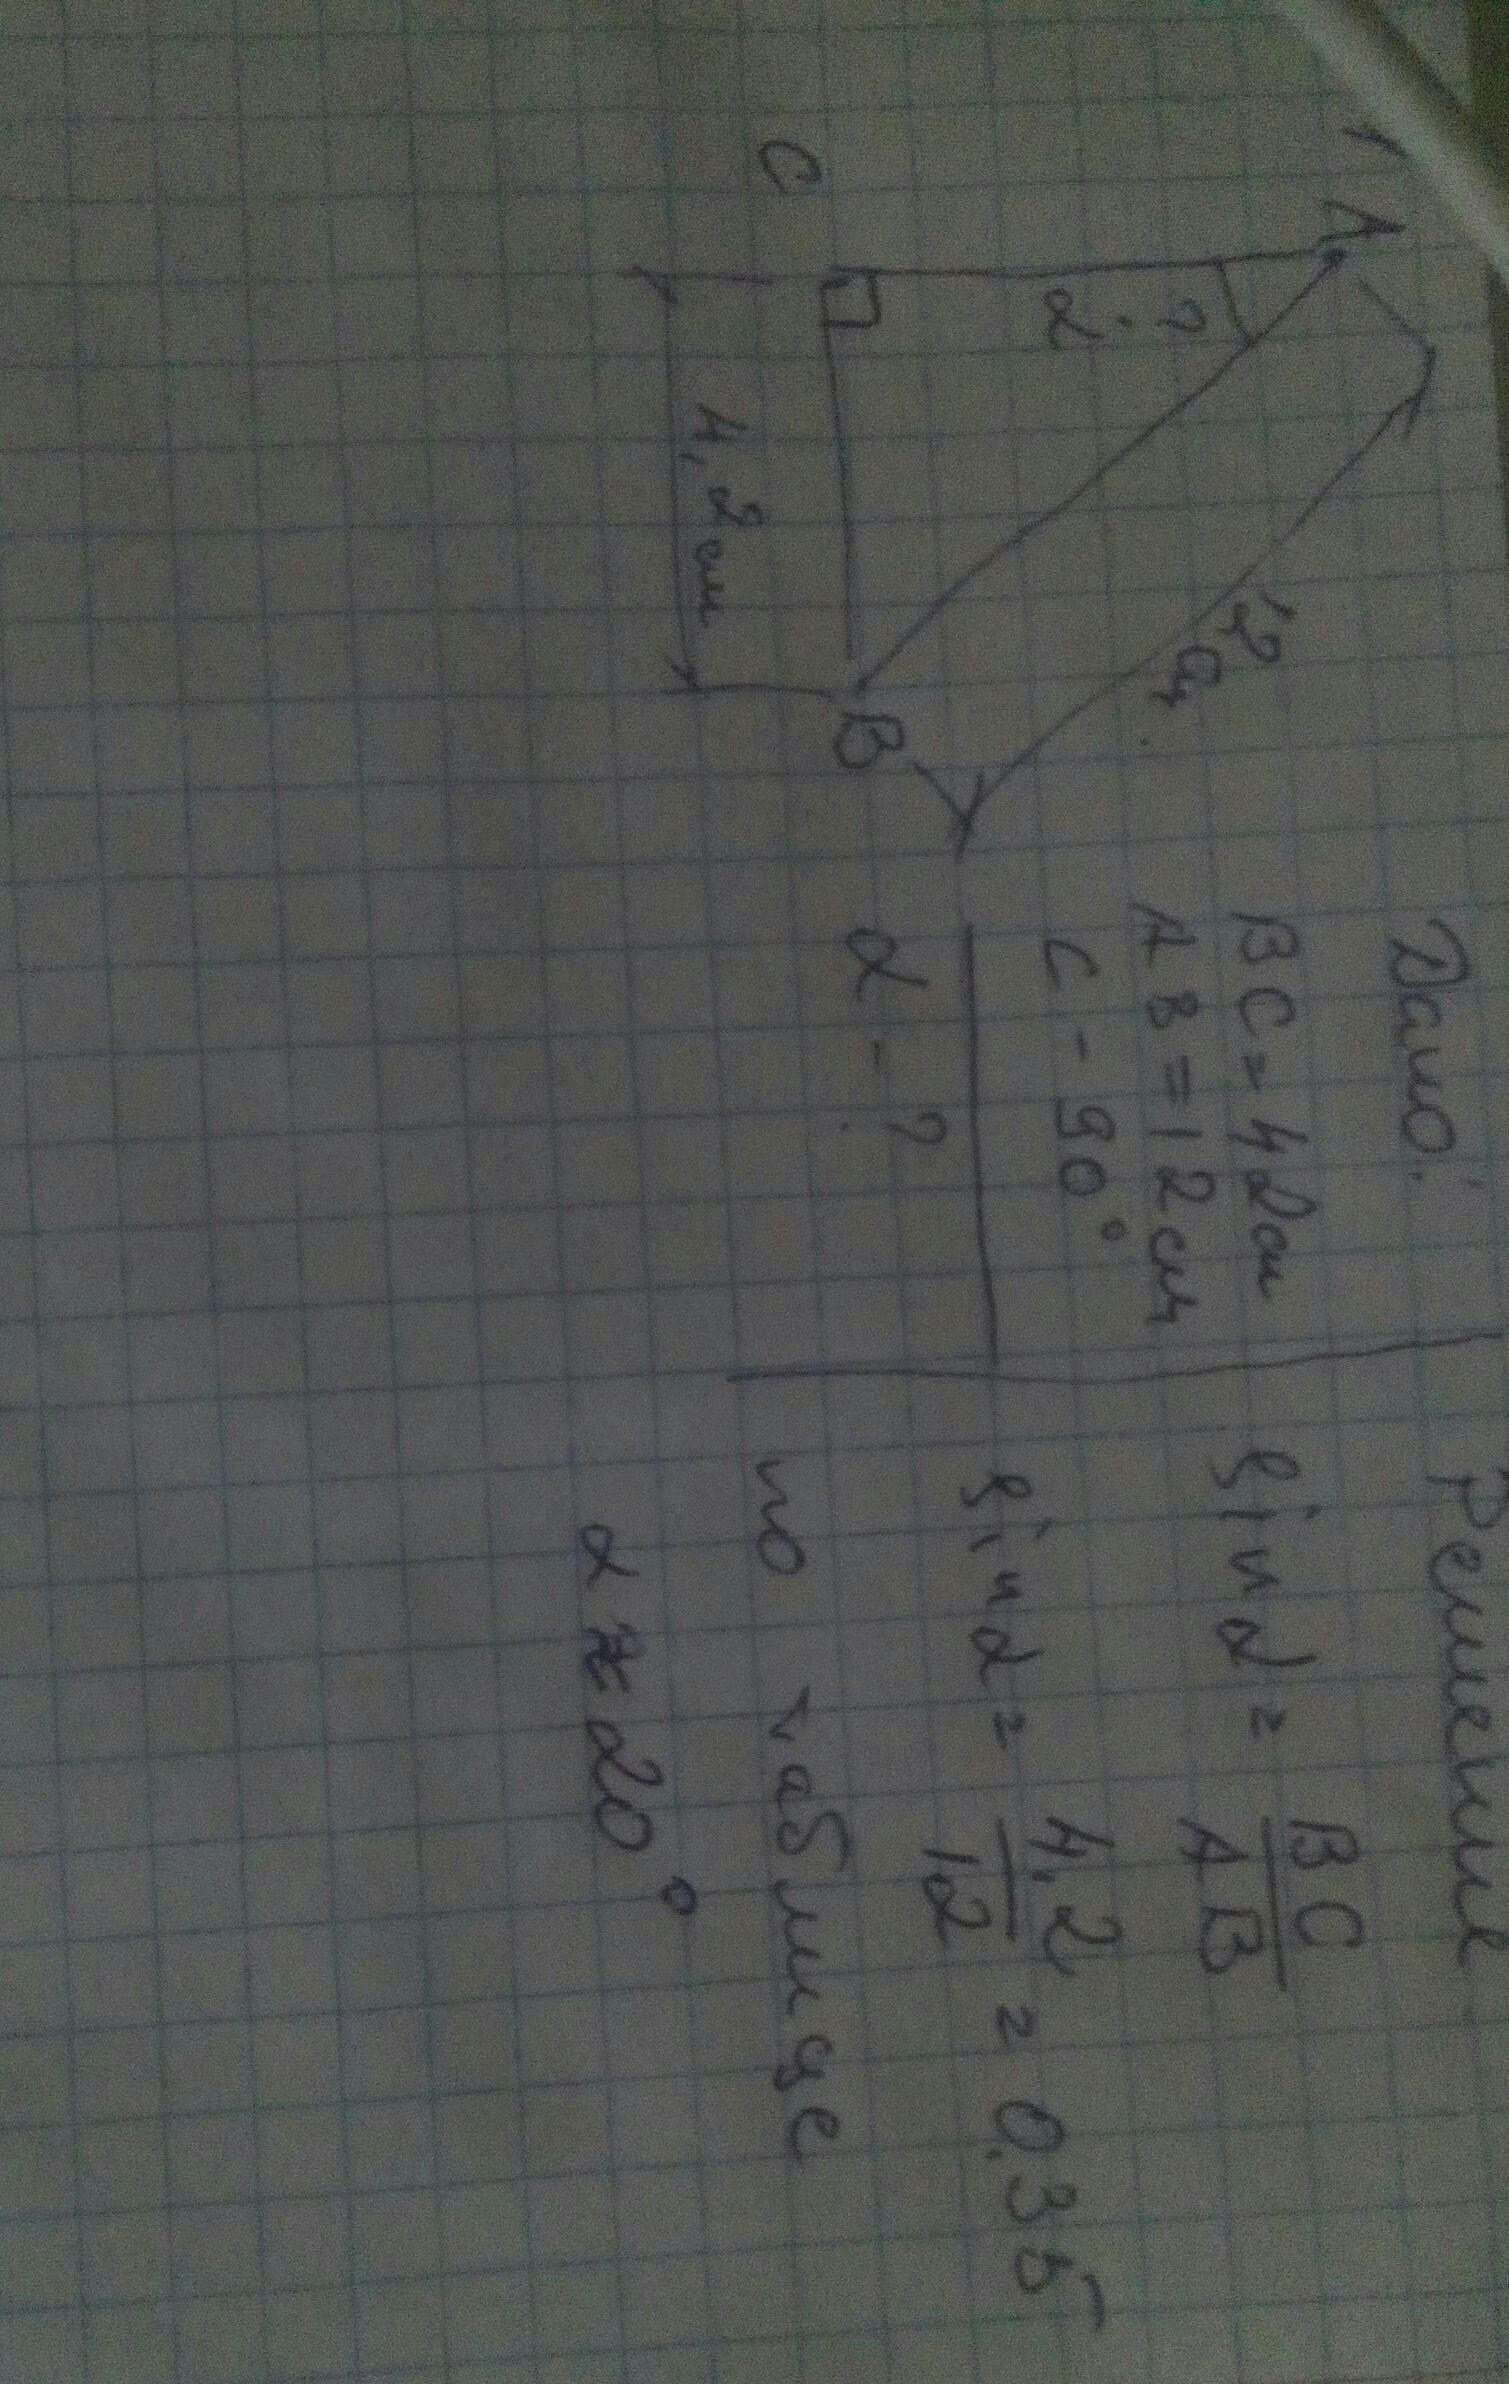 A
? α
12 см
C
B
4,2 см
Дано:
BC = 4 2 см
AB = 12 см
C - 90°
α - ?
Решение
sin α = BC / AB
sin α = 4,2 / 12 = 0,35
по таблице
α ≈ 20°